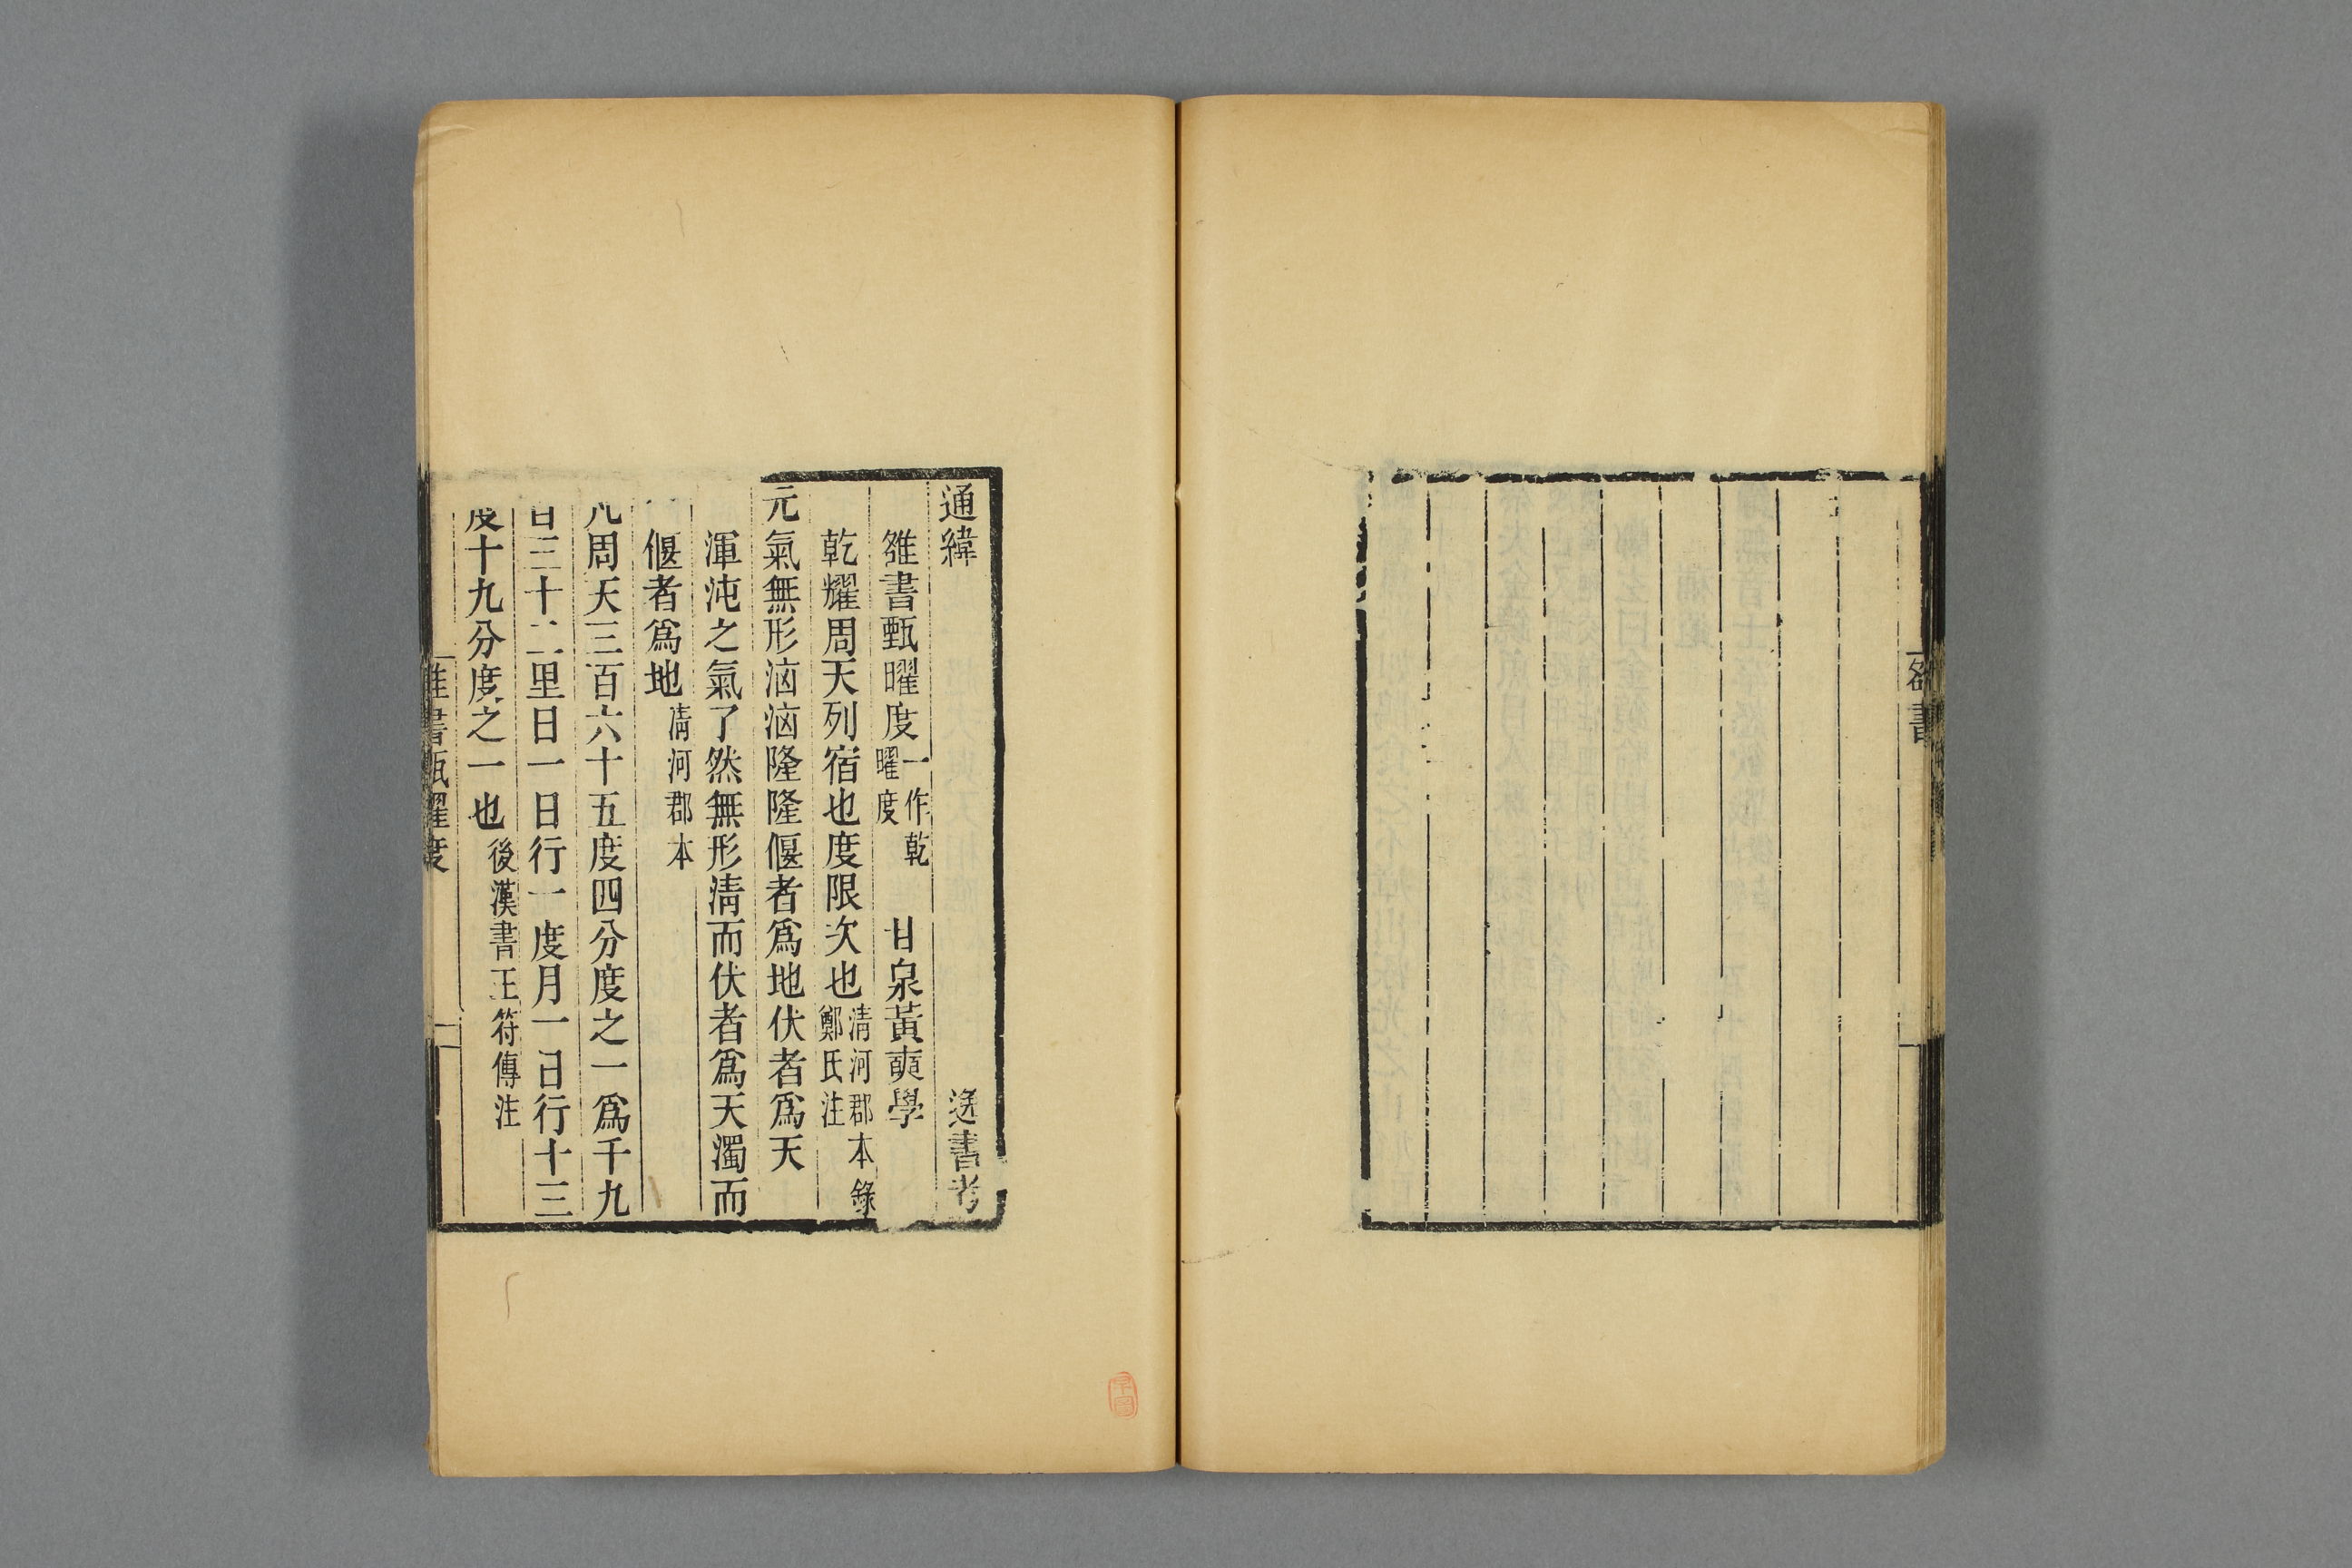 書
通緯　逸書考
雒書甄曜度一作乾曜度　甘泉黃奭學
乾耀周天列宿也度限次也清河郡本錄鄭氏注
元氣無形洶洶隆隆偃者爲地伏者爲天
渾沌之氣了然無形清而伏者爲天濁而
偃者爲地清河郡本
凡周天三百六十五度四分度之一爲千九
百三十二里日一日行一度月一日行十三
度十九分度之一也後漢書王符傳注
雒書甄曜度